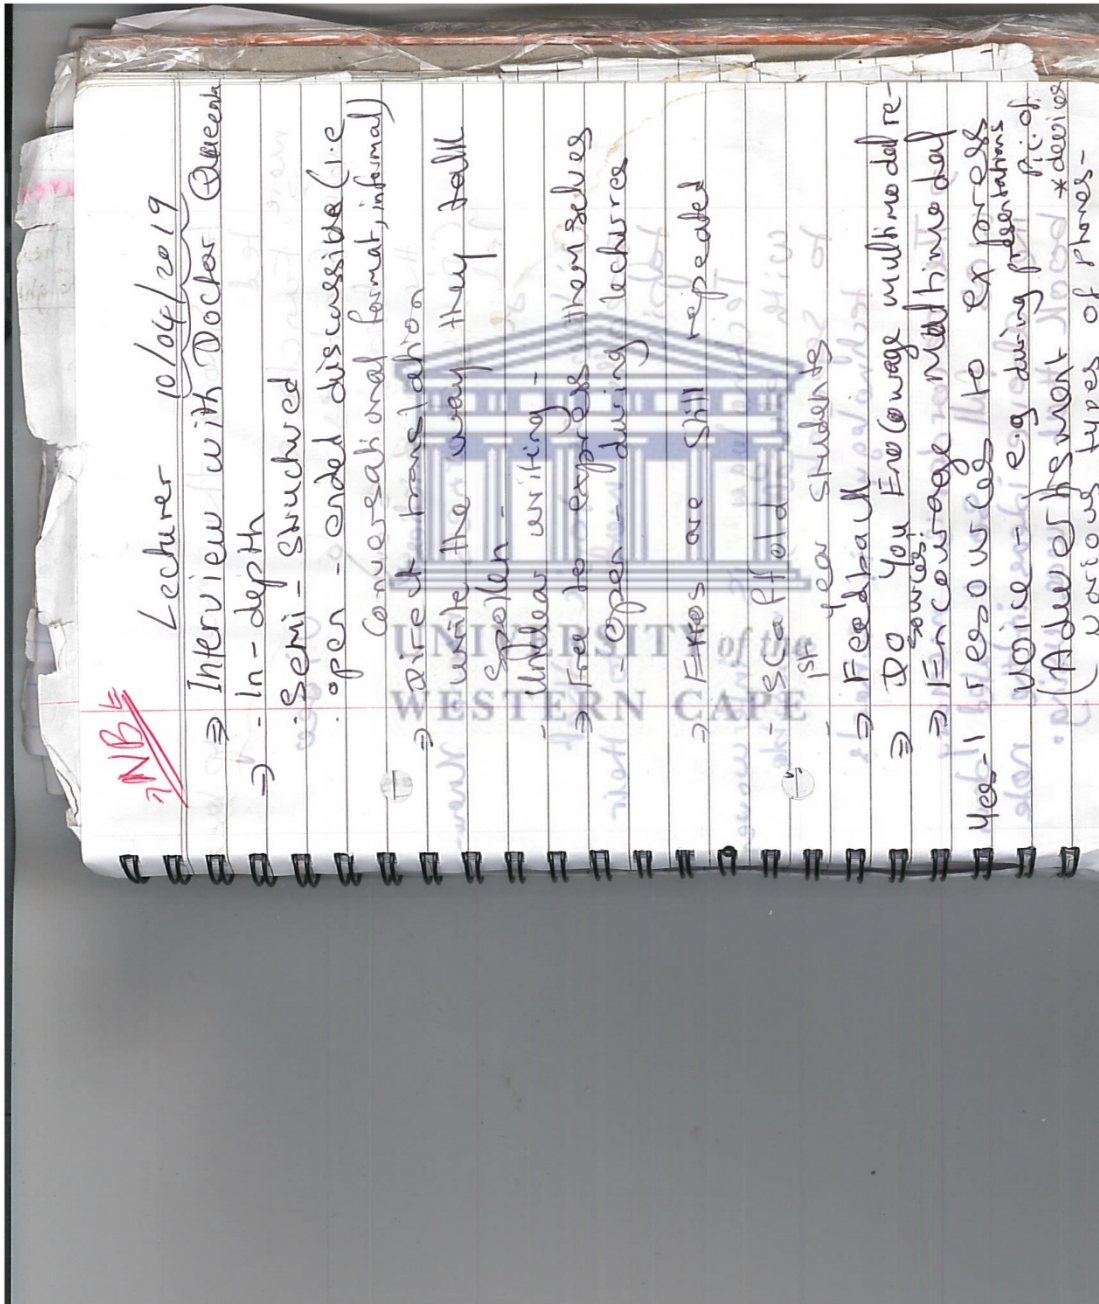 NB
Lecturer 10/04/2019
⇒ Interview with Doctor
⇒ - In-depth
- Semi-structured
. open-ended discussible (i.e
conversational format, informal)
⇒ Direct translation
- write the way they talk
spoken -
- Unclear writing -
⇒ Free to express themselves
- Open - during lecturrce
⇒ are still repeated
- Scaffold
- 1st year students
⇒ Feedback
⇒ DO you Encourage multimodal re-
sources?
⇒ Encourage multimodal
Yes - 1 resources to express
voice - eg during presentations
(Advertisment pic of
various types of phones - *devices
UNIVERSITY of the
WESTERN CAPE